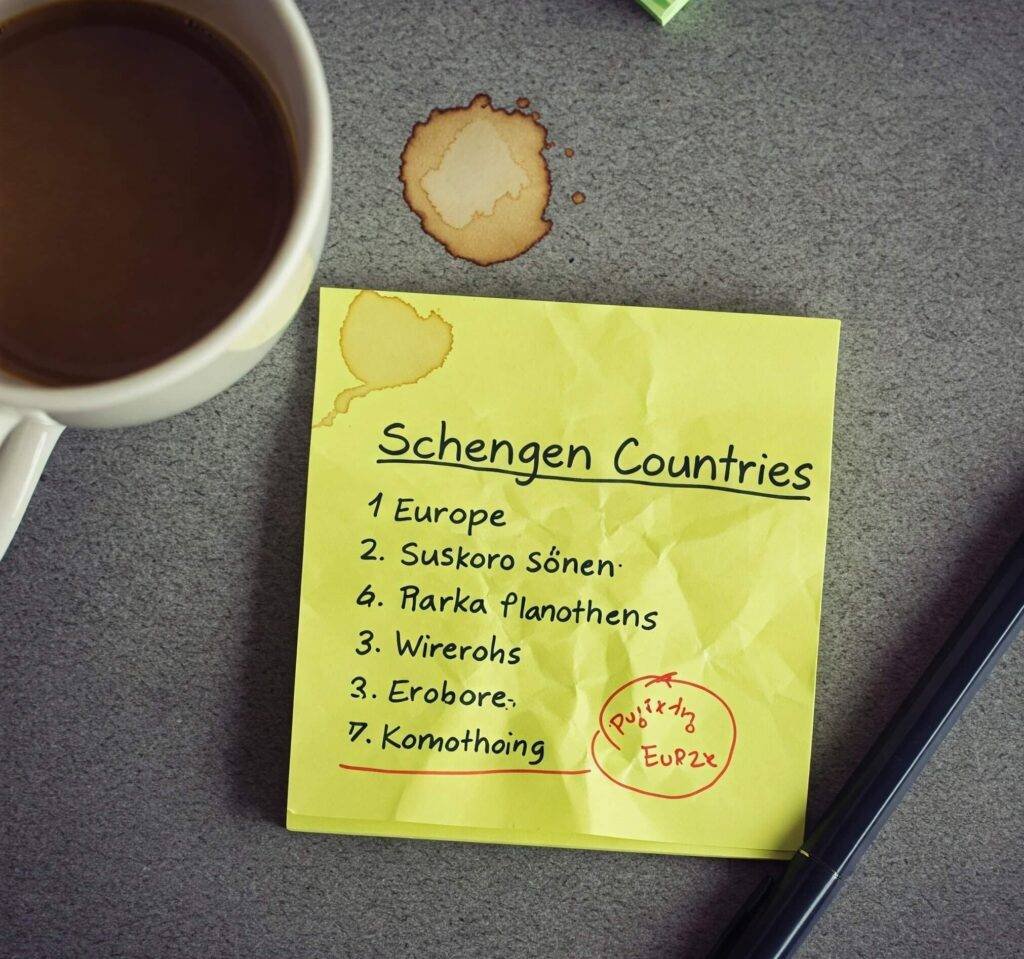 Schengen Countries
1 Europe
2. Suskoro sőnen.
6. Rarka planothens
3. Wirerohs
3. Erobore.
7. Komothoing
EUR2x